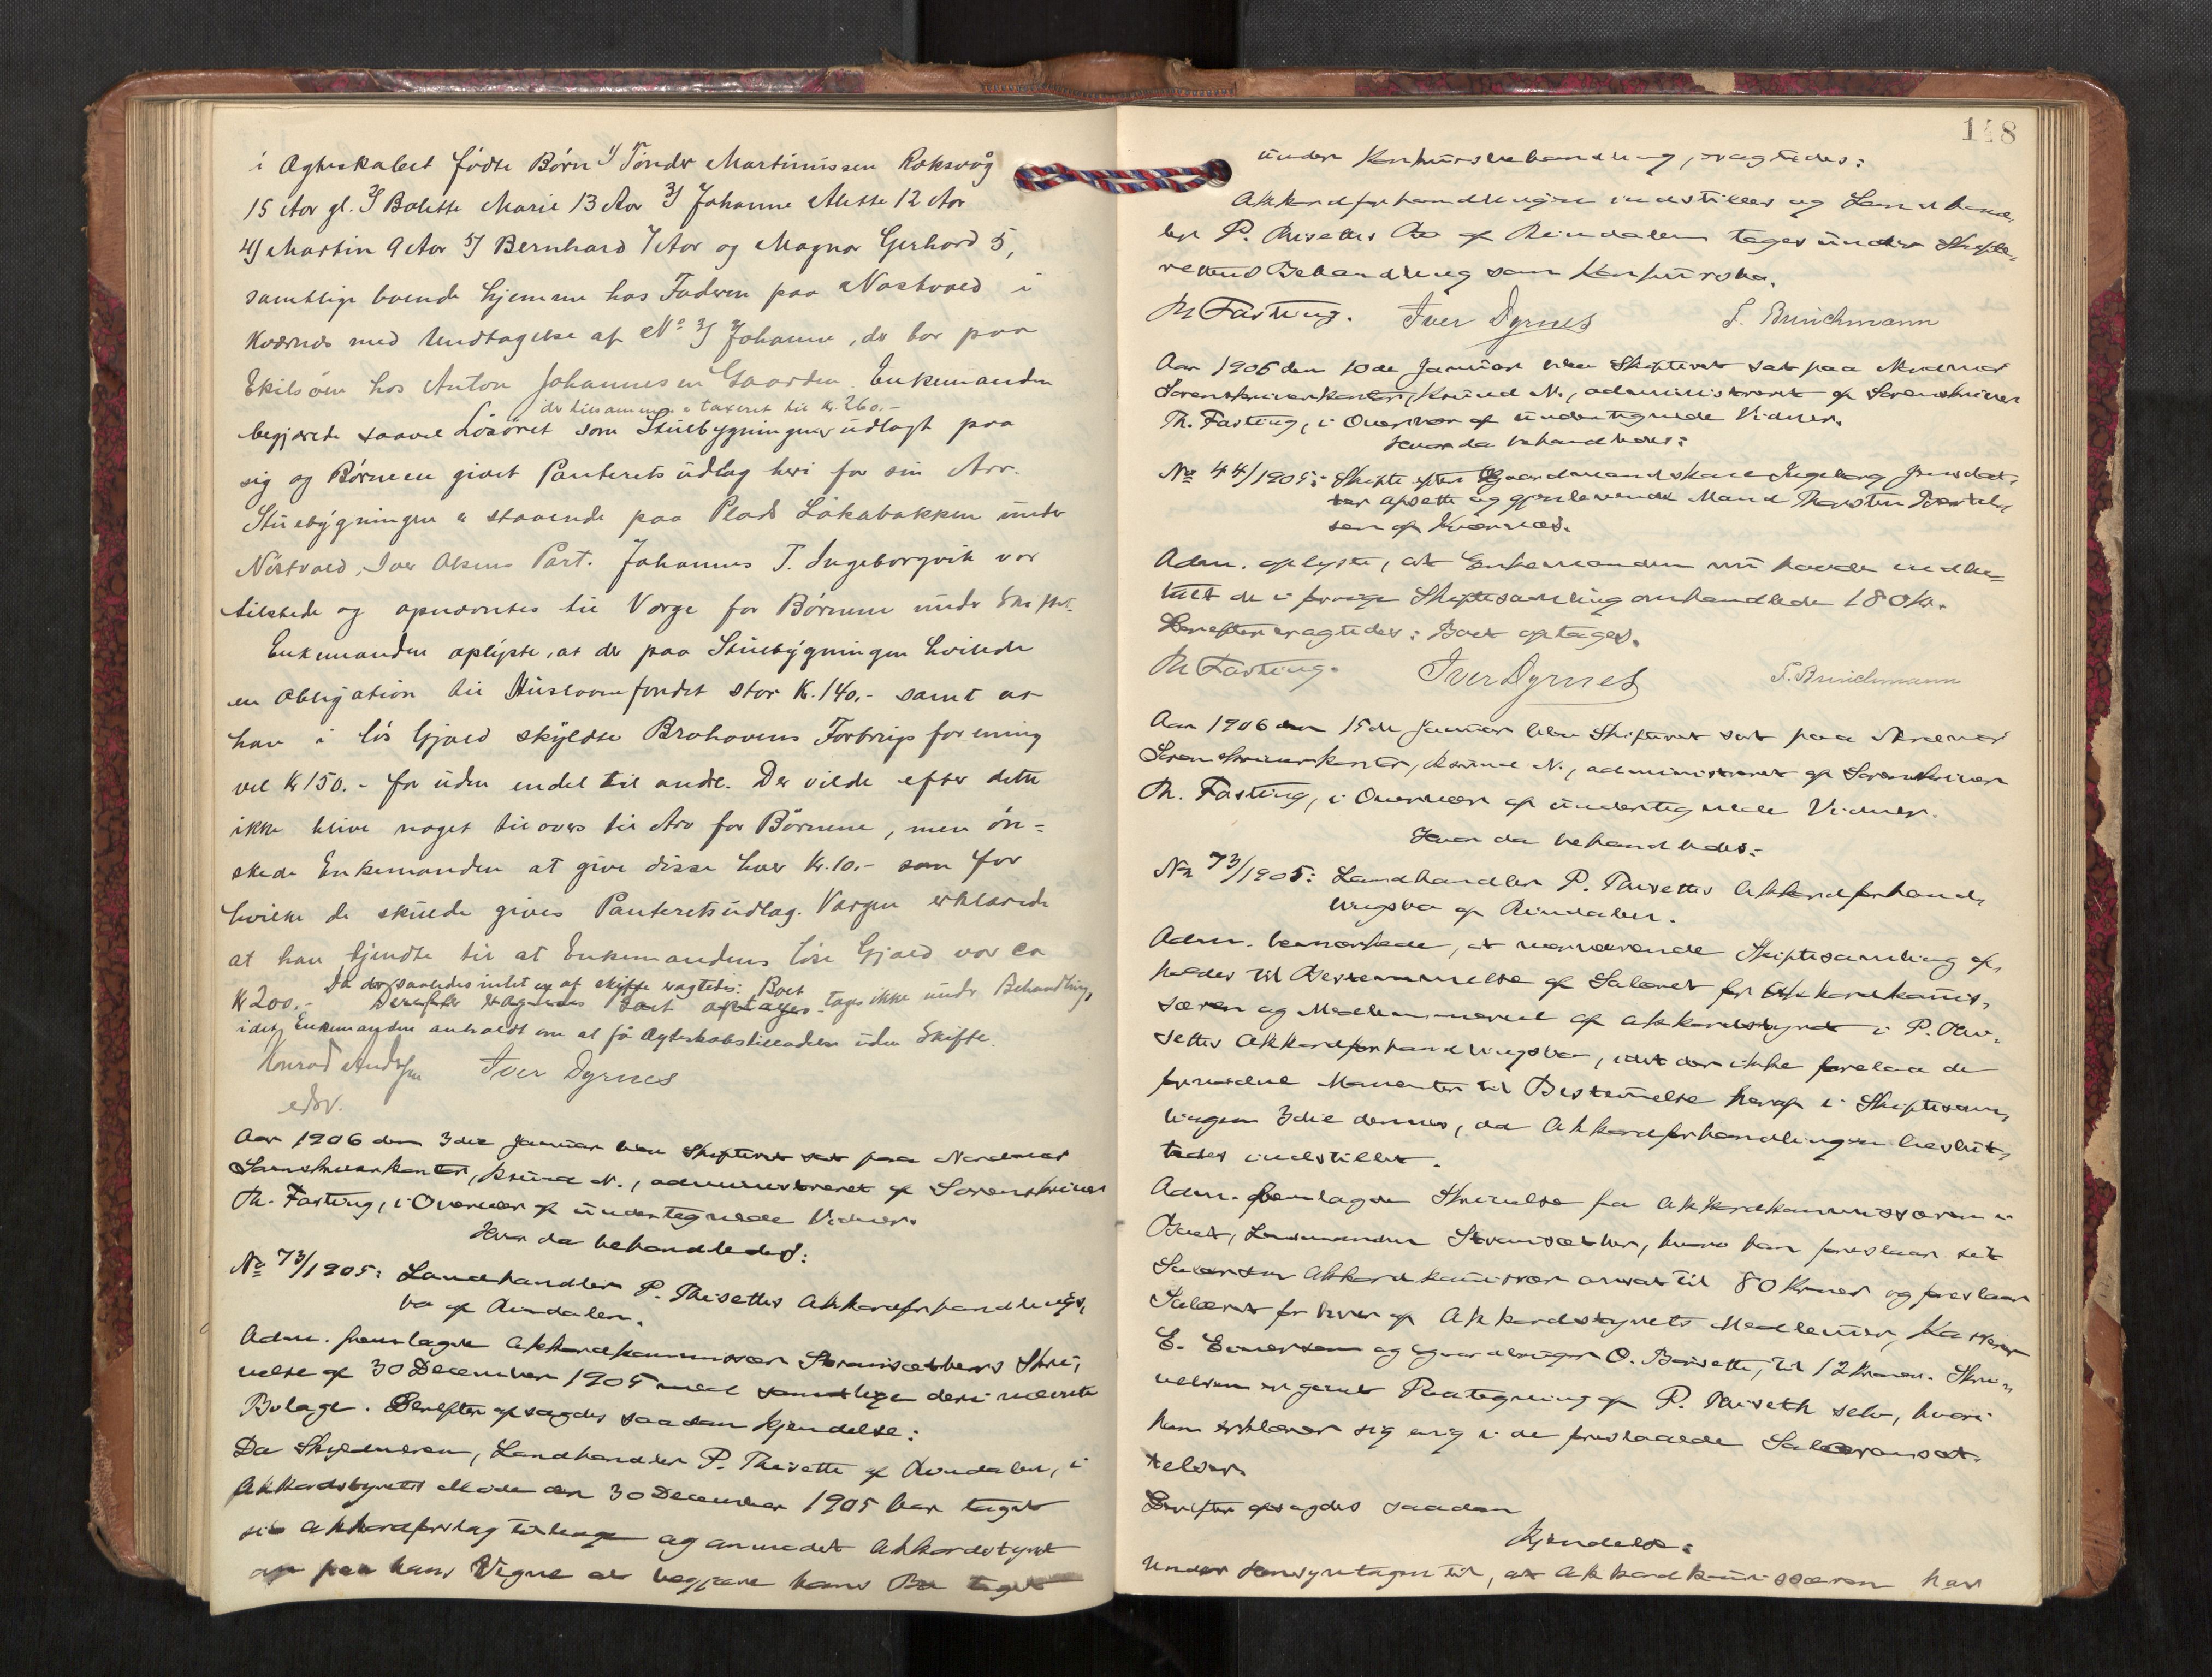 i Ægteskabet födte Børn 1) Tønder Martinussen Roksvåg
15 Aar gl. 2) Bolette Marie 13 Aar 3) Johanne Mette 12 Aar
4) Martin 9 Aar 5) Bernhard 7 Aar og Magnar Gerhard 5,
samtlige boende hjemme hos Faderen paa Nastvold i
Kværnes med Undtagelse af No 3) Johanne, der bor paa
Ekilsöen hos Anton Johannesen Gaarden. Enkemanden
der tilsammen er taxeret til Kr. 260.-
begjærede saavel Lösöret som Stuebygningen udlagt paa
sig og Börnene givet Panterets udlag heri for sin Arv.
Stuebygningen er staaende paa Plads Låkabakken under
Nöstvold, Iver Olsens Part. Johannes T. Ingeborgvik var
tilstede og opnævntes til Værge for Börnene under Skiftet.
Enkemanden oplyste, at der paa Stuebygningen hvilede
en Obligation til Huslaanefondet stor K. 140.- samt at
han i lös Gjæld skyldte Brohavens Forbrugsforening
vel Kr 150.- for uden endel til andre. Der vilde efter dette
ikke blive noget tilovers til Arv for Börnene, men ön=
skede Enkemanden at give disse hver Kr. 10.- som for
hvilke de skulde gives Panteretsudlag. Værgen erklærede
at han kjendte til at Enkemandens löse Gjæld var ca
Da der saaledes intet er af skifte eragtedes: Boet
Kr 200.- Derefter eragtedes Boet optages. tages ikke under Behandling,
idet Enkemanden anholdt om at få Ægteskabstilladelse uden Skifte.
Konrad Andersen Iver Dyrnes
edsv.
Aar 1906 den 3die Januar blev Skifteret sat paa Nordmør
Sorenskriverkontor, Ksund N., administreret af Sorenskriver
Th. Fasting, i Overvær af undertegnede Vidner.
Hvor da behandledes:
No 73/1905: Landhandler P. Thisettes Akkordforhandlings,
bo af Rindalen.
Adm. fremlagde Akkordkommissær Strandsætters Skri,
velse af 30 December 1905 med samtlige deri nævnte
Bilage. Derefter afsagdes saadan Kjendelse:
Da Skyldneren, Landhandler P. Thisette af Rindalen, i
Akkordstyrets Møde den 30 December 1905 har taget
sit Akkordforslag tilbage og anmodet Akkordstyret
om paa hans Vegne at begjære hans Bo taget
148
under Konkursbehandling, eragtedes:
Akkordforhandlingen indstilles og Landhand,
ler P. Thisettes Bo af Rindalen tages under Skifte,
rettens Behandling som Konkursbo.
Th Fasting. Iver Dyrnes S. Brinchmann
Aar 1906 den 10de Januar blev Skifteret sat paa Nordmør
Sorenskriverkontor, Ksund N., administreret af Sorenskriver
Th. Fasting, i Overvær af undertegnede Vidner.
Hvor da behandledes:
No 44/1905: Skifte efter Gaardmandskone Ingeborg Jensdat,
ter Opsette og gjenlevende Mand Thorsten Bertel,
sen af Kværnes.
Adm. oplyste, at Enkemanden nu havde indbe=
talt de i forrige Skiftesamling omhandlede 180 kr.
Derefter eragtedes: Boet optages.
Th Fasting. Iver Dyrnes S. Brinchmann
Aar 1906 den 15de Januar blev Skifteret sat paa Nordmør
Sorenskriverkontor, Ksund N., administreret af Sorenskriver
Th. Fasting, i Overvær af undertegnede Vidner.
Hvor da behandledes:
No 73/1905: Landhandler P. Thisettes Akkordforhand,
lingsbo af Rindalen.
Adm. bemærkede, at nærværende Skiftesamling af,
holdes til Bestemmelse af Salæret for Akkordkommis,
særen og Medlemmerne af Akkordstyret i P. Thi,
settes Akkordforhandlingsbo, idet der ikke forelaa de
fornødne Momenter til Bestemmelse heraf i Skiftesam,
lingen 3die dennes, da Akkordforhandlingen beslut,
tedes indstillet.
Adm. fremlagde Skrivelse fra Akkordkommissæren i
Boet, Lensmanden Strandsætter, hvori han foreslaar sit
Salær som Akkordkommissær ansat til 80 Kroner og foreslaar
Salæret for hver af Akkordstyrets Medlemmer, Kasserer
E. Einersen og Gaardbruger O. Børsette, til 12 Kroner. Skri,
velsen er givet Paategning af P. Thiseth selv, hvori
han erklærer sig enig i de foreslaaede Salæransæt,
telser.
Derefter afsagdes saadan
Kjendelse:
Under Hensyntagen til, at Akkordkommissæren har